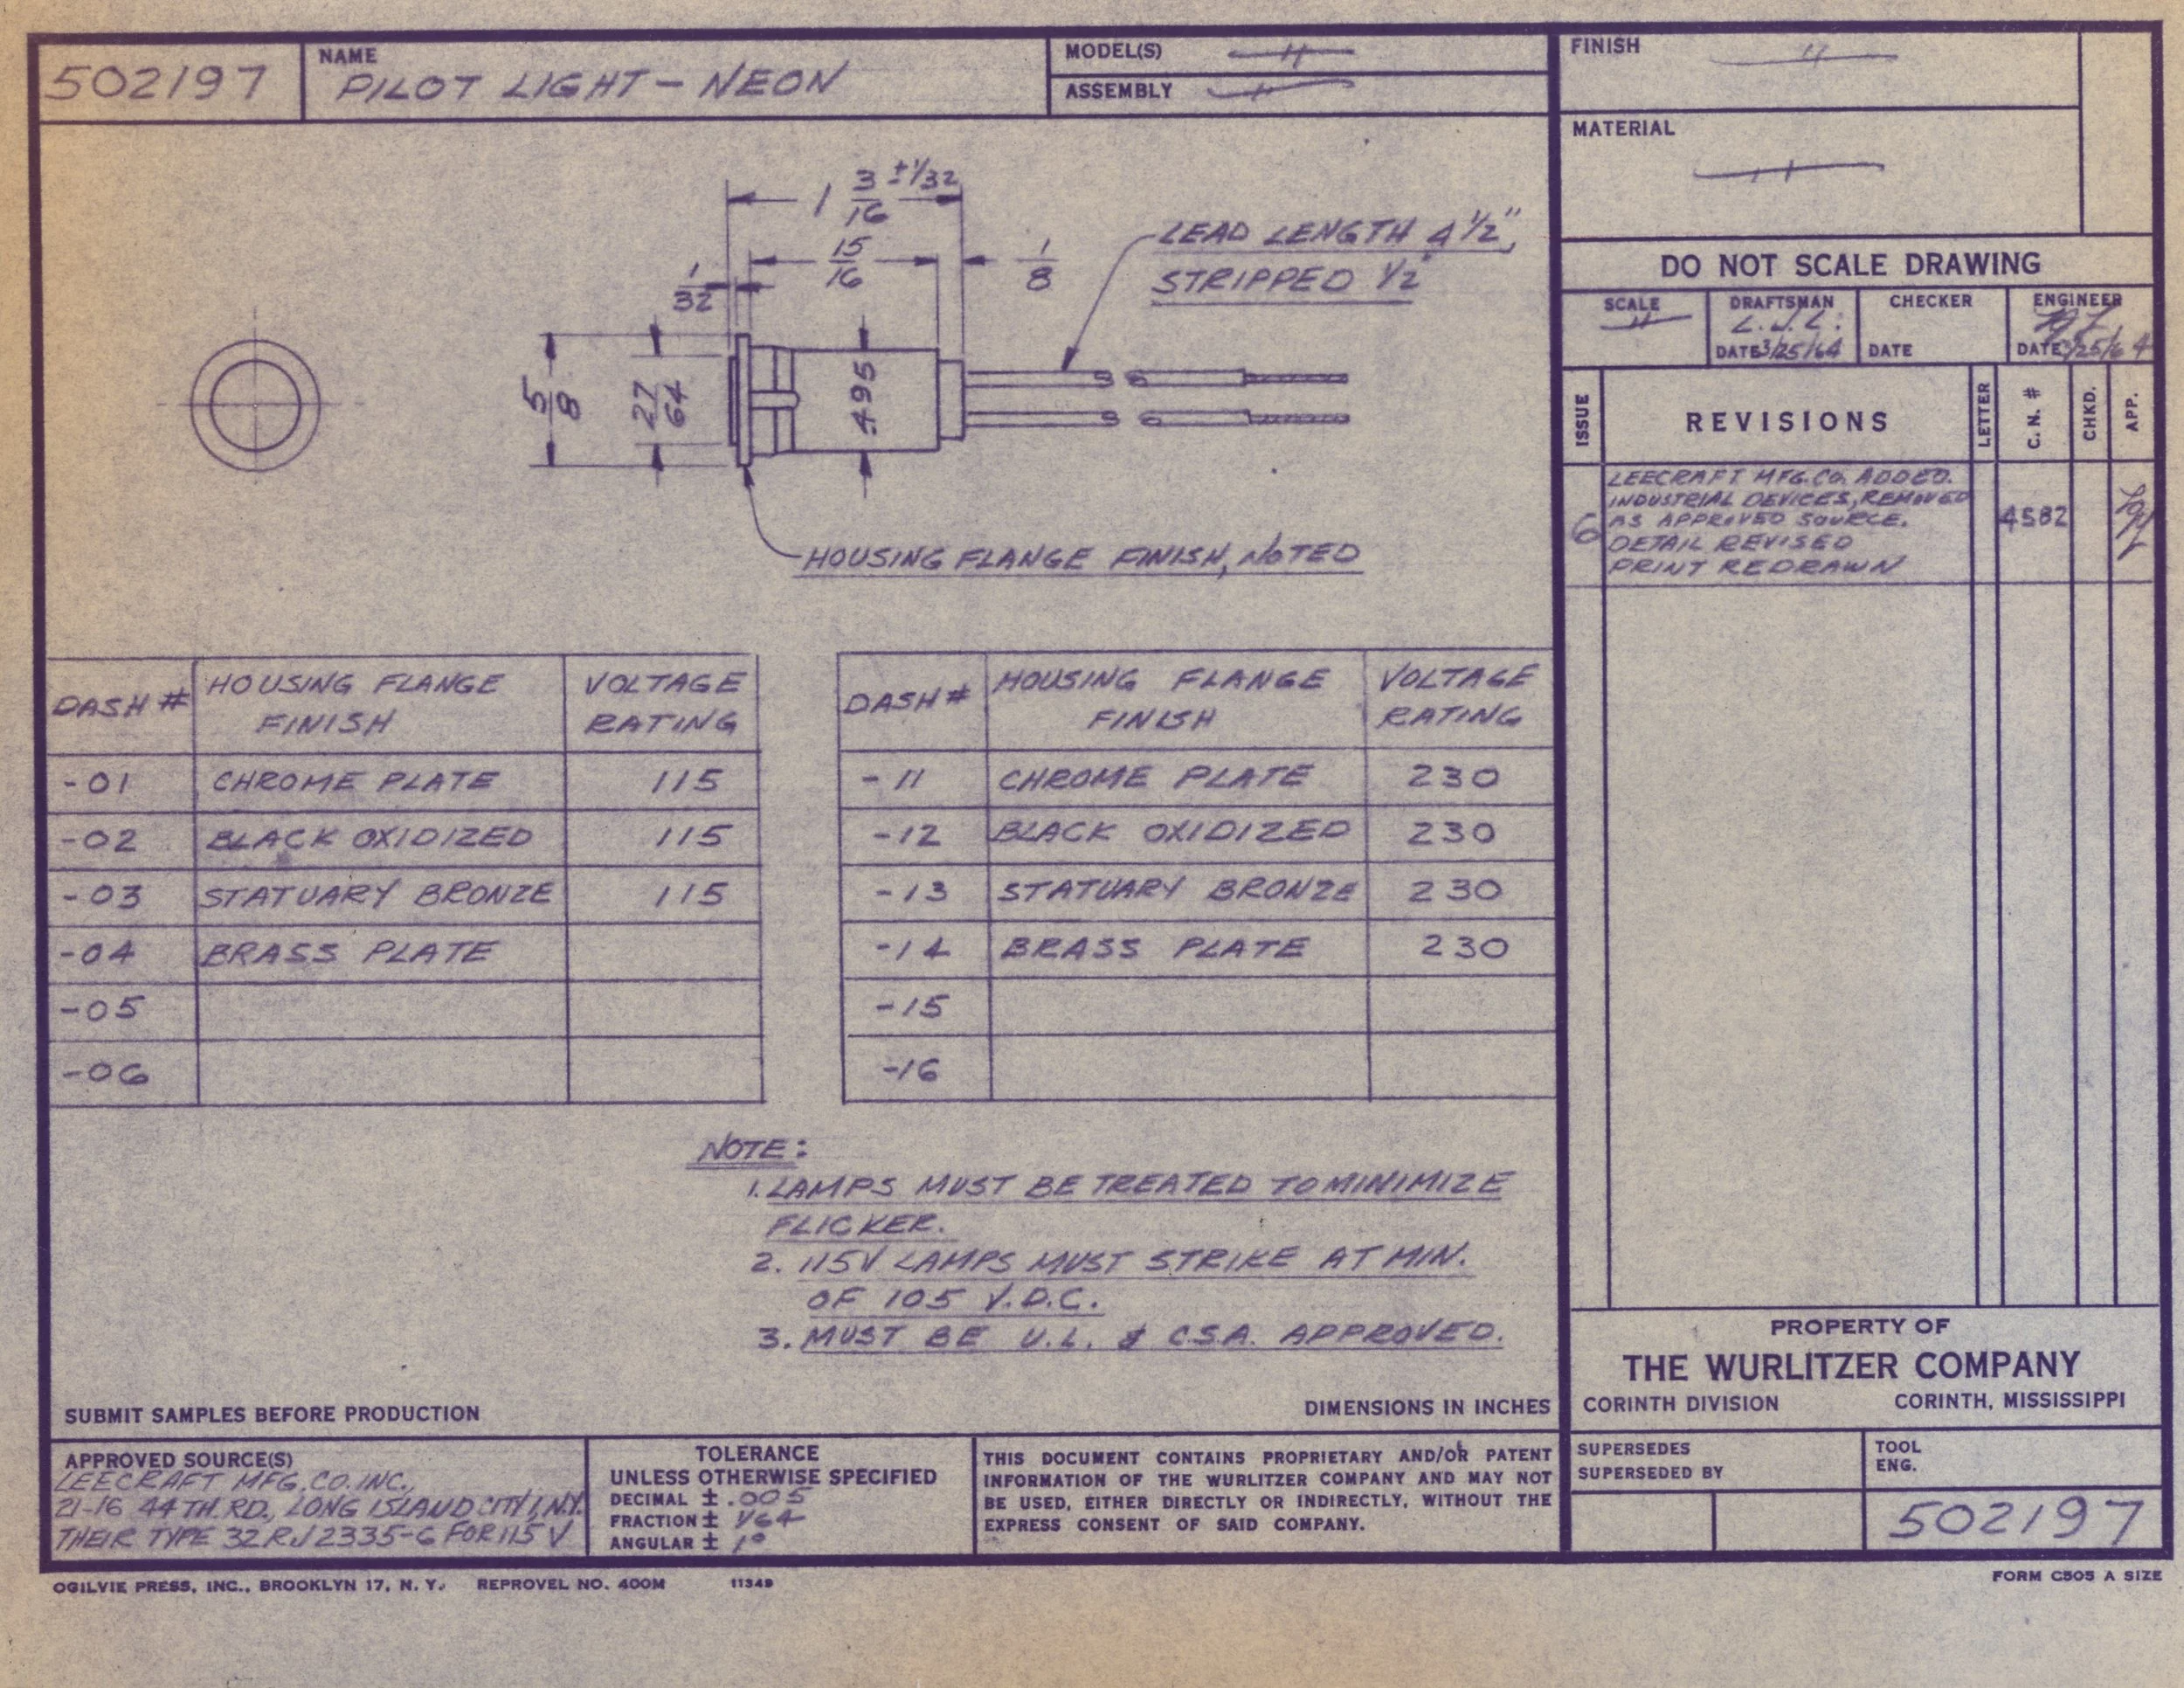 502197
NAME
PILOT LIGHT - NEON
MODEL(S)
ASSEMBLY
FINISH
MATERIAL
1 3/16 ±1/32
15/16
1/8
1/32
5/8
27/64
.495
LEAD LENGTH 4 1/2",
STRIPPED 1/2"
HOUSING FLANGE FINISH, NOTED
DO NOT SCALE DRAWING
SCALE
DRAFTSMAN
L.J.L.
DATE 3/25/64
CHECKER
DATE
ENGINEER
DATE 3/25/64
ISSUE
REVISIONS
LETTER
C. N. #
CHKD.
APP.
6
LEECRAFT MFG. CO. ADDED.
INDUSTRIAL DEVICES, REMOVED
AS APPROVED SOURCE.
DETAIL REVISED
PRINT REDRAWN
4582
DASH # HOUSING FLANGE FINISH VOLTAGE RATING
-01 CHROME PLATE 115
-02 BLACK OXIDIZED 115
-03 STATUARY BRONZE 115
-04 BRASS PLATE
-05
-06
DASH # HOUSING FLANGE FINISH VOLTAGE RATING
-11 CHROME PLATE 230
-12 BLACK OXIDIZED 230
-13 STATUARY BRONZE 230
-14 BRASS PLATE 230
-15
-16
NOTE:
1. LAMPS MUST BE TREATED TO MINIMIZE
FLICKER.
2. 115V LAMPS MUST STRIKE AT MIN.
OF 105 V.D.C.
3. MUST BE U.L. & C.S.A. APPROVED.
SUBMIT SAMPLES BEFORE PRODUCTION
DIMENSIONS IN INCHES
APPROVED SOURCE(S)
LEECRAFT MFG. CO. INC.,
21-16 44TH. RD., LONG ISLAND CITY 1, N.Y.
THEIR TYPE 32RJ2335-6 FOR 115 V
TOLERANCE
UNLESS OTHERWISE SPECIFIED
DECIMAL ± .005
FRACTION ± 1/64
ANGULAR ± 1°
THIS DOCUMENT CONTAINS PROPRIETARY AND/OR PATENT
INFORMATION OF THE WURLITZER COMPANY AND MAY NOT
BE USED, EITHER DIRECTLY OR INDIRECTLY, WITHOUT THE
EXPRESS CONSENT OF SAID COMPANY.
PROPERTY OF
THE WURLITZER COMPANY
CORINTH DIVISION CORINTH, MISSISSIPPI
SUPERSEDES
SUPERSEDED BY
TOOL
ENG.
502197
OGILVIE PRESS, INC., BROOKLYN 17, N. Y. REPROVEL NO. 400M 11349
FORM C505 A SIZE